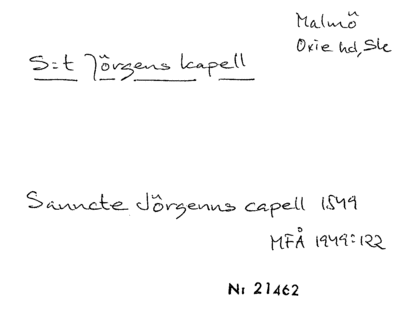 Malmö
Oxie hd, Sk
S:t Jörgens kapell
Sanncte Jörgenns capell 1549
MFÅ 1949:122
Nr 21462